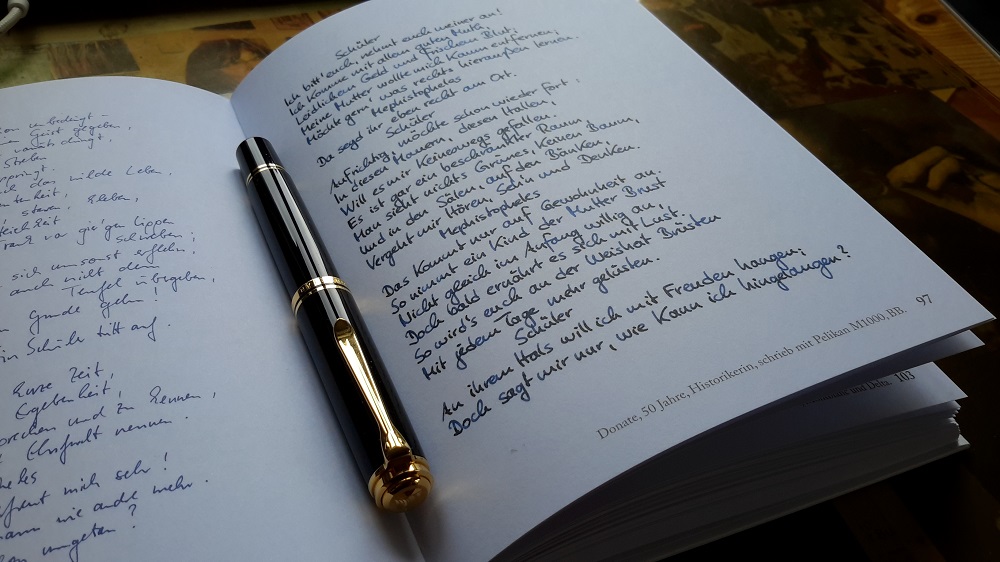 unbedingt –
Geist gegeben,
dringt,
Streben
das wilde Leben,
starren, kleben,
vor gier'gen Lippen
schweben;
sich umsonst erflehn,
auch nicht dem
Teufel übergeben,
Grunde gehn!
Schüler tritt auf.
kurze Zeit,
Ergebenheit,
und zu kennen,
Ehrfurcht nennen.
mich sehr!
wie andre mehr.
umgetan?
Schüler
Ich bitt' euch, nehmt euch meiner an!
Ich komme mit allem guten Muth,
Leidlichem Geld und frischem Blut;
Meine Mutter wollte mich kaum entfernen,
Möcht gern' was rechts hieraußen lernen.
Mephistopheles
Da seyd ihr eben recht am Ort.
Schüler
Aufrichtig, möchte schon wieder fort:
In diesen Mauern, diesen Hallen,
Will es mir keineswegs gefallen.
Es ist ein gar beschränkter Raum,
Man sieht nichts Grünes, keinen Baum,
Und in den Sälen, auf den Bänken,
Vergeht mir Hören, Seh'n und Denken.
Mephistopheles
Das kommt nur auf Gewohnheit an.
So nimmt ein Kind der Mutter Brust
Nicht gleich im Anfang willig an,
Doch bald ernährt es sich mit Lust.
So wird's euch an der Weisheit Brüsten
Mit jedem Tage mehr gelüsten.
Schüler
An ihrem Hals will ich mit Freuden hangen;
Doch sagt mir nur, wie kann ich hingelangen?
Donate, 50 Jahre, Historikerin, schrieb mit Pelikan M1000, BB. 97
103